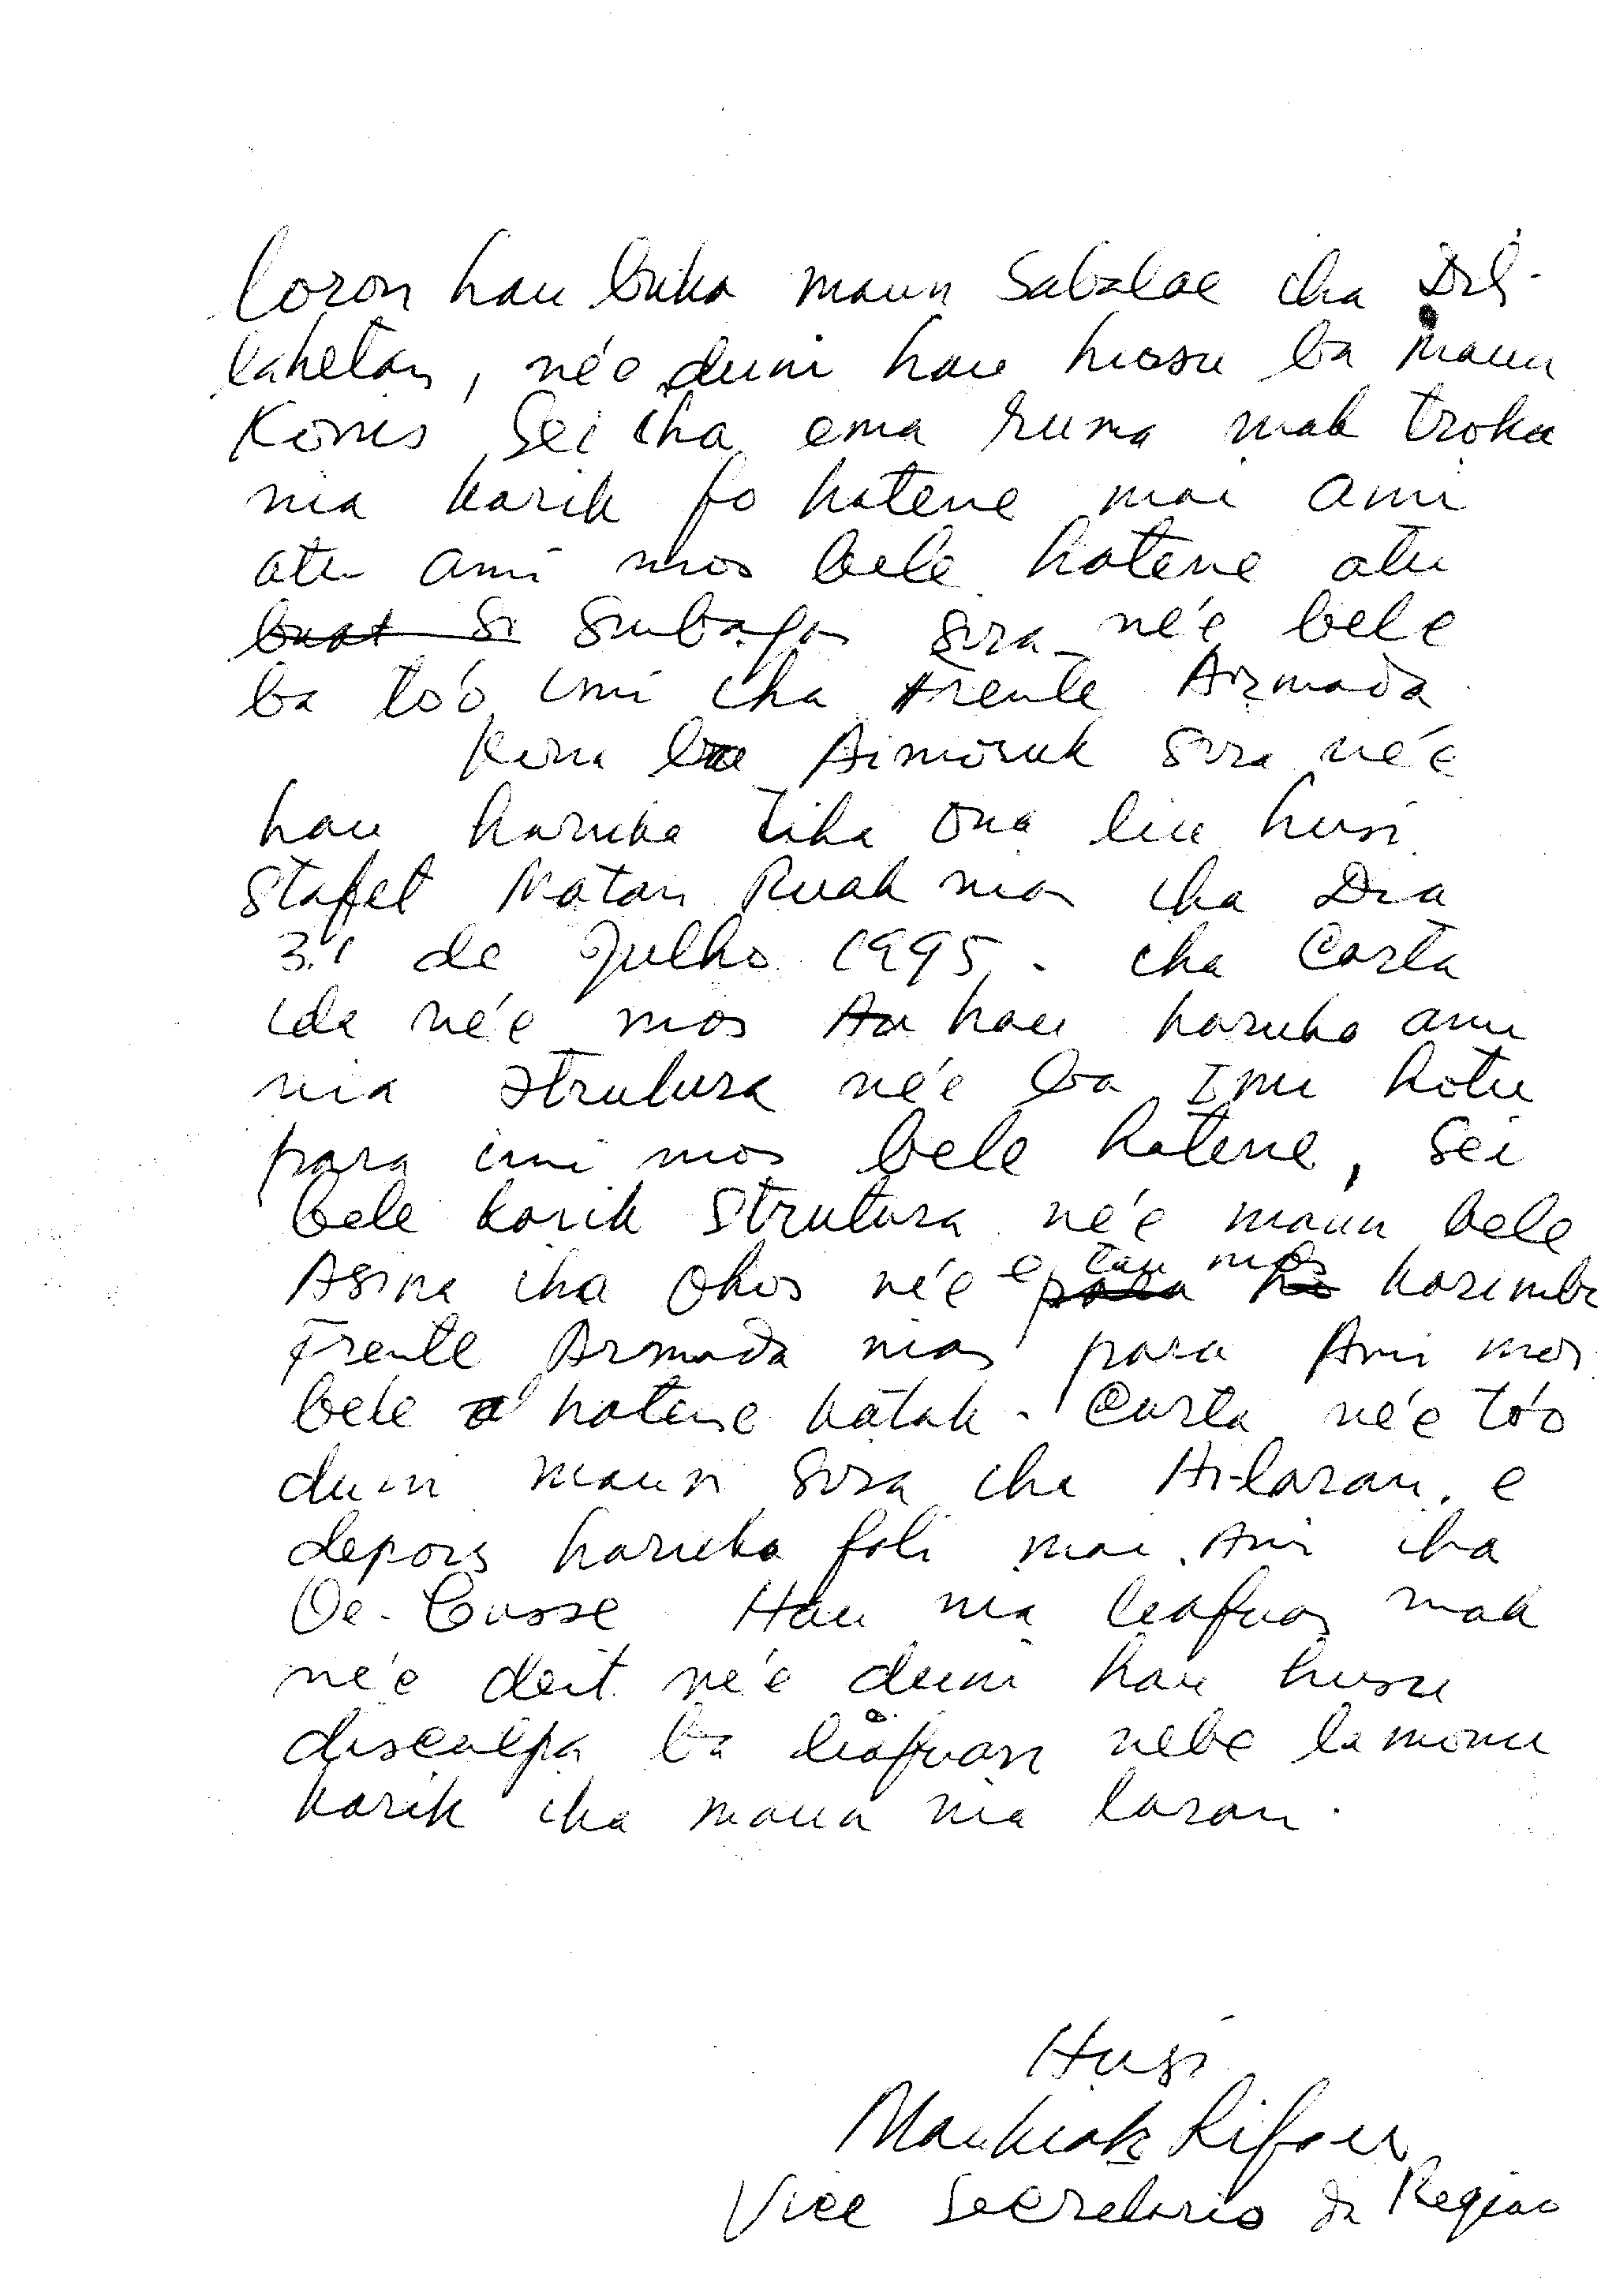 loron hau buka maun Sabalae iha Dili
lahetan, né'e duni hau husu ba Maun
Konis Sei iha ema ruma mak troka
nia karik fo hatene mai ami
atu ami mos bele hatene atu
buat Si Sumbagan sira né'e bele
ba to'o imi iha Frente Armada
Kona ba Aimoruk sira né'e
hau haruka tiha ona liu husi
Stafet Matan Ruak nian iha Dia
31 de Julho 1995. iha Carta
ida né'e mos hau haruka ami
nia Strutura né'e ba Imi hotu
para imi mos bele hatene, sei
bele karik Strutura né'e maun bele
Asina iha Okos né'e e tau mos karimbo
Frente Armada nian para Ami mos
bele hatene katak. Carta né'e to'o
duni maun sira iha Ai-laran. e
depois haruka fali mai Ami iha
Oe-Cusse Hau nia liafuan mak
né'e deit né'e duni hau husu
disculpa ba liafuan nebe la monu
karik iha maun nia laran.
Husi
Maukiak Lifau
Vice Secretario da Região